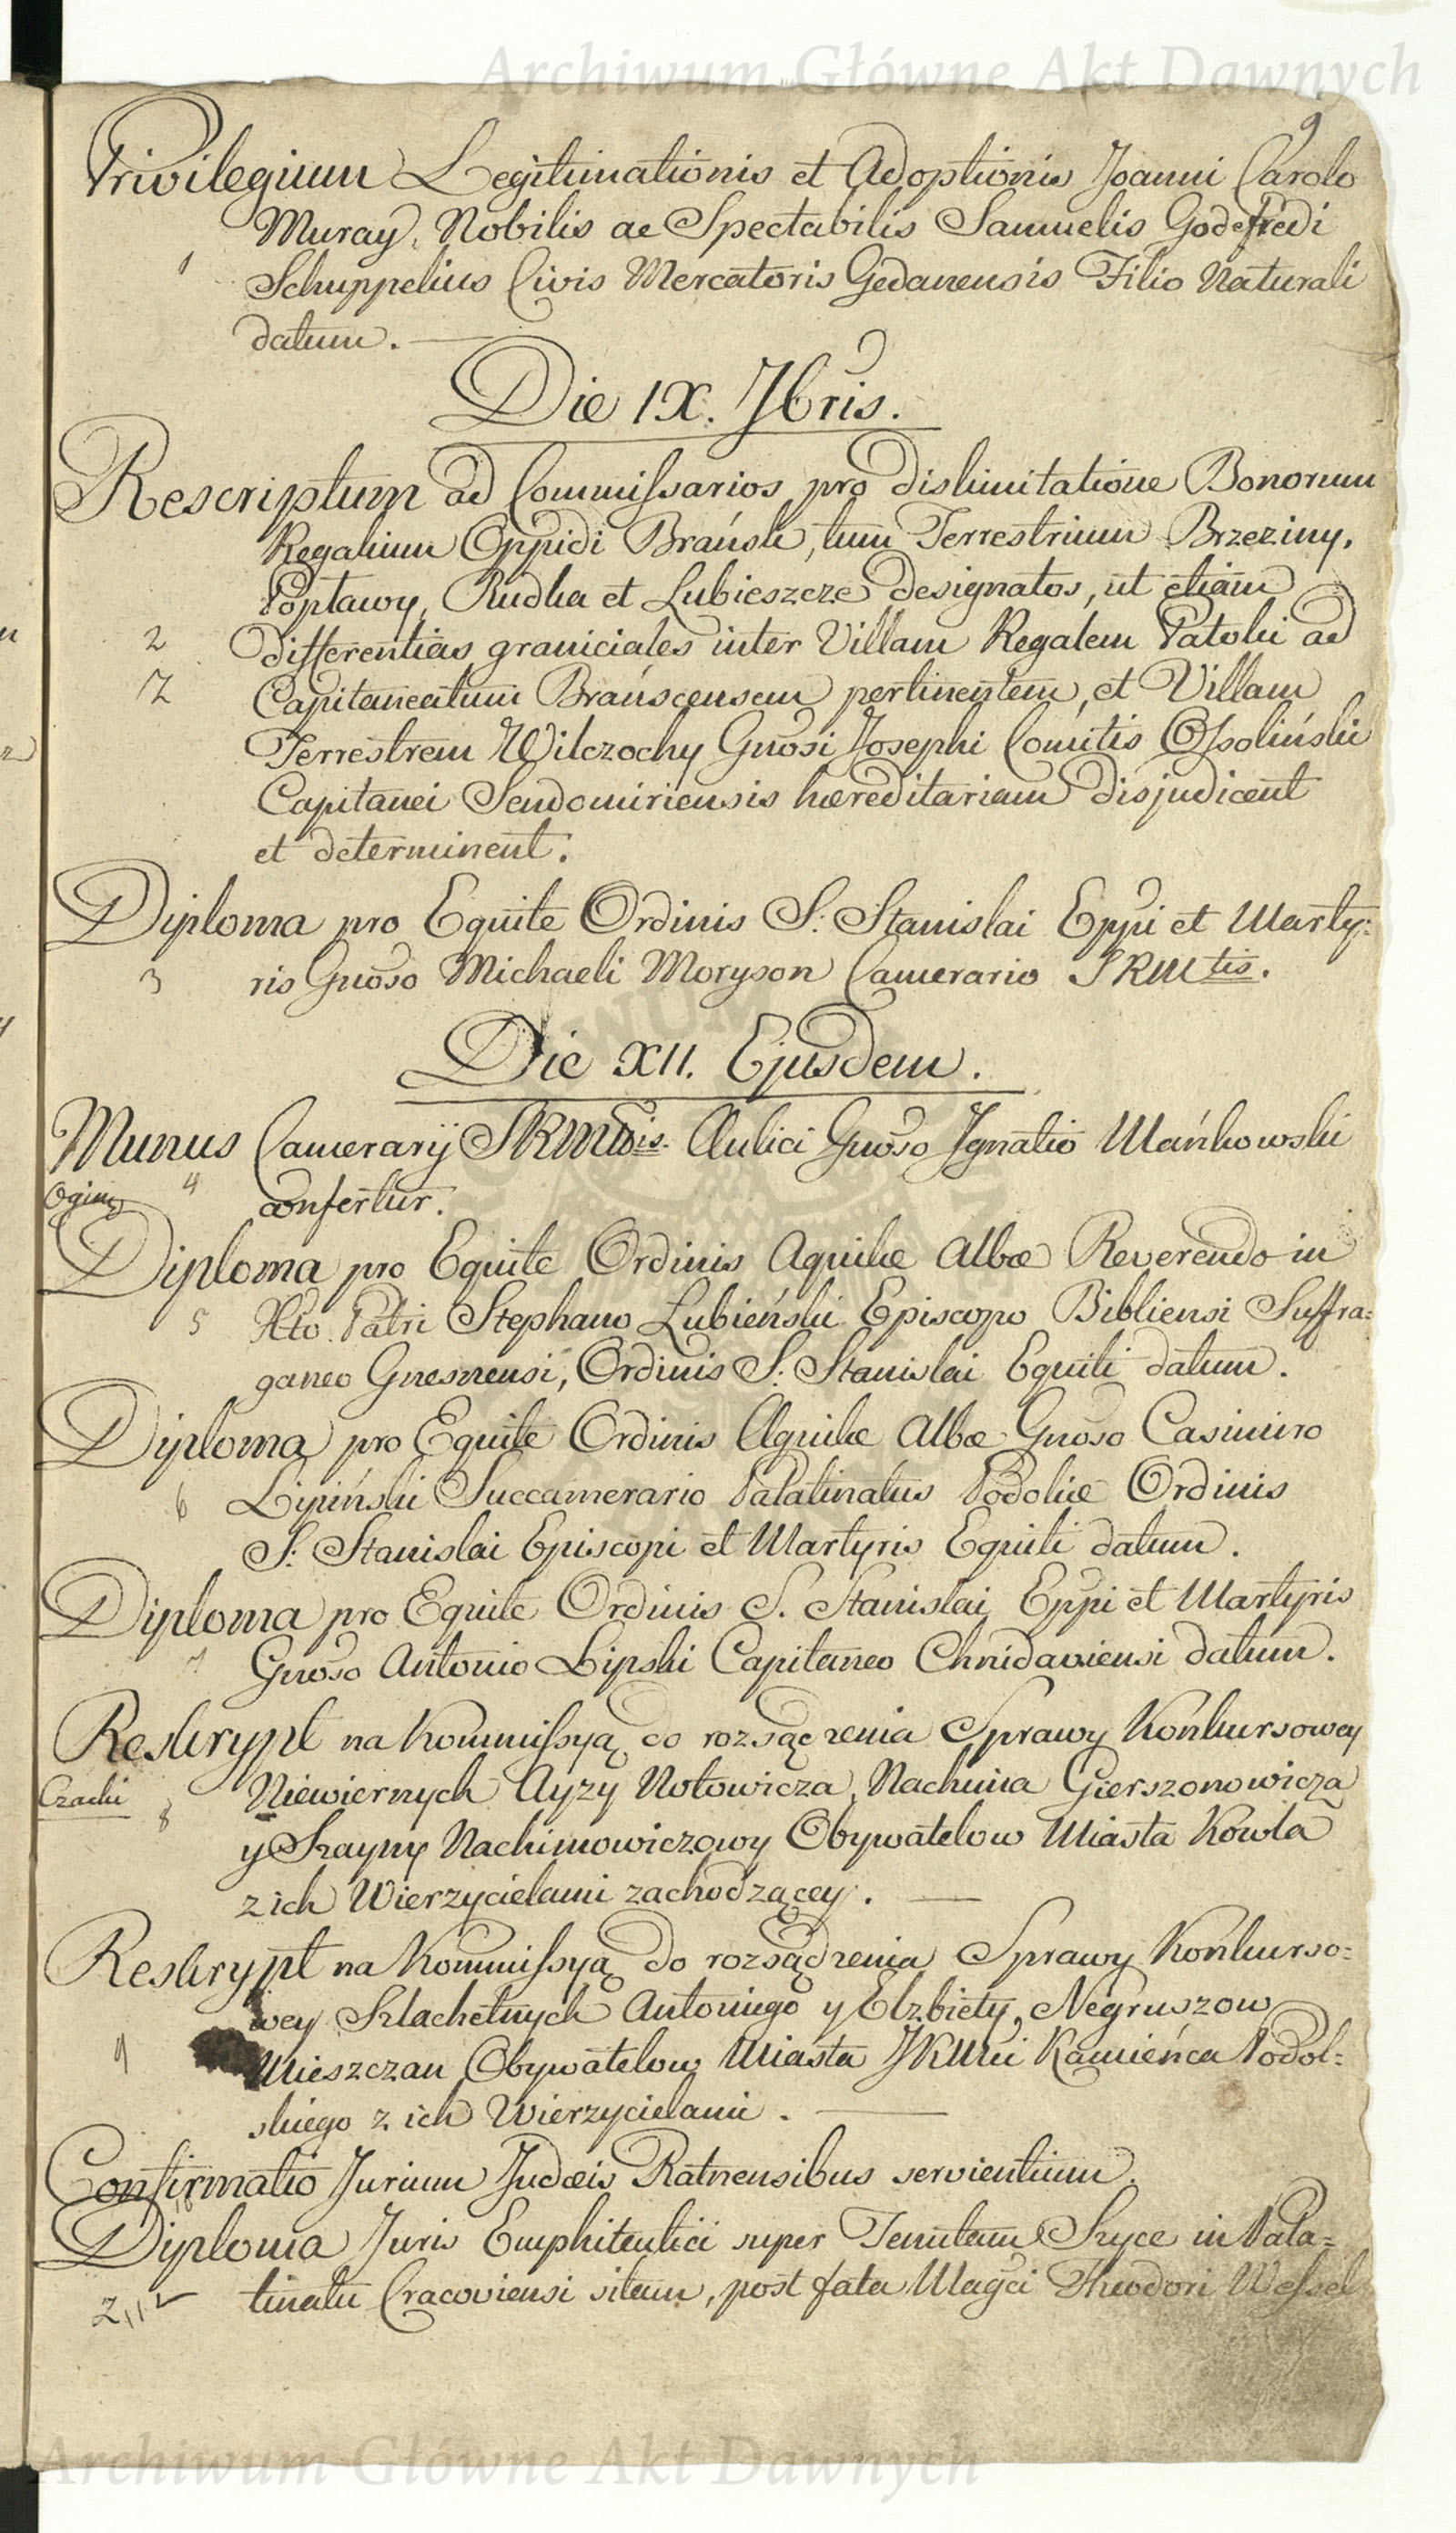 Archiwum Główne Akt Dawnych
9
Privilegium Legitimationis et Adoptionis Joanni Carolo
Muray, Nobilis ac Spectabilis Samuelis Godefredi
1 Schuppelius Civis Mercatoris Gedanensis Filio Naturali
datum.
Die IX. 7bris.
Rescriptum ad Commissarios pro dislimitatione Bonorum
Regalium Oppidi Brańsk, tum Terrestrium Brzeziny,
Popławy, Rudka et Lubieszcze designatos, ut etiam
2 differentias graniciales inter Villam Regalem Patoki ad
Z Capitaneatum Brańscensem pertinentem, et Villam
Terrestrem Wilczochy Gnosi Josephi Comitis Ossoliński
Capitanei Sendomiriensis hæreditariam disjudicent
et determinent.
Diploma pro Equite Ordinis S: Stanislai Eppi et Marty:
3 ris Gnoso Michaeli Moryson Camerario SRMtis.
Die XII. Ejusdem.
Munus Camerarij SRMtis. Aulici Gnoso Ignatio Mańkowski
4 confertur.
Ogin
Diploma pro Equite Ordinis Aquilæ Albæ Reverendo in
5 Xto. Patri Stephano Łubieński Episcopo Bibliensi Suffra:
ganeo Gnesnensi, Ordinis S: Stanislai Equiti datum.
Diploma pro Equite Ordinis Aquilæ Albæ Gnoso Casimiro
6 Lipiński Succamerario Palatinatus Podoliæ Ordinis
S: Stanislai Episcopi et Martyris Equiti datum.
Diploma pro Equite Ordinis S. Stanislai Eppi et Martyris
7 Gnoso Antonio Lipski Capitaneo Chnidaviensi datum.
Reskrypt na Kommissyą do rozsądzenia Sprawy Konkursowey
Czacki 8 Niewiernych Ayzy Notowicza, Nachima Gierszonowicza
y Szayny Nachimowiczowy Obywatelow Miasta Kowla
z ich Wierzycielami zachodzącey.
Reskrypt na Kommissyą do rozsądzenia Sprawy Konkurso:
wey Szlachetnych Antoniego y Elzbiety, Negruszow
9 Mieszczan Obywatelow Miasta JKMci Kamieńca Podol:
skiego z ich Wierzycielami.
Confirmatio Jurium Judæis Ratnensibus servientium.
Diploma Juris Emphiteutici super Tenutam Szyce in Pala=
tinatu Cracoviensi sitam, post fata Magci Theodori Wessel
Archiwum Główne Akt Dawnych